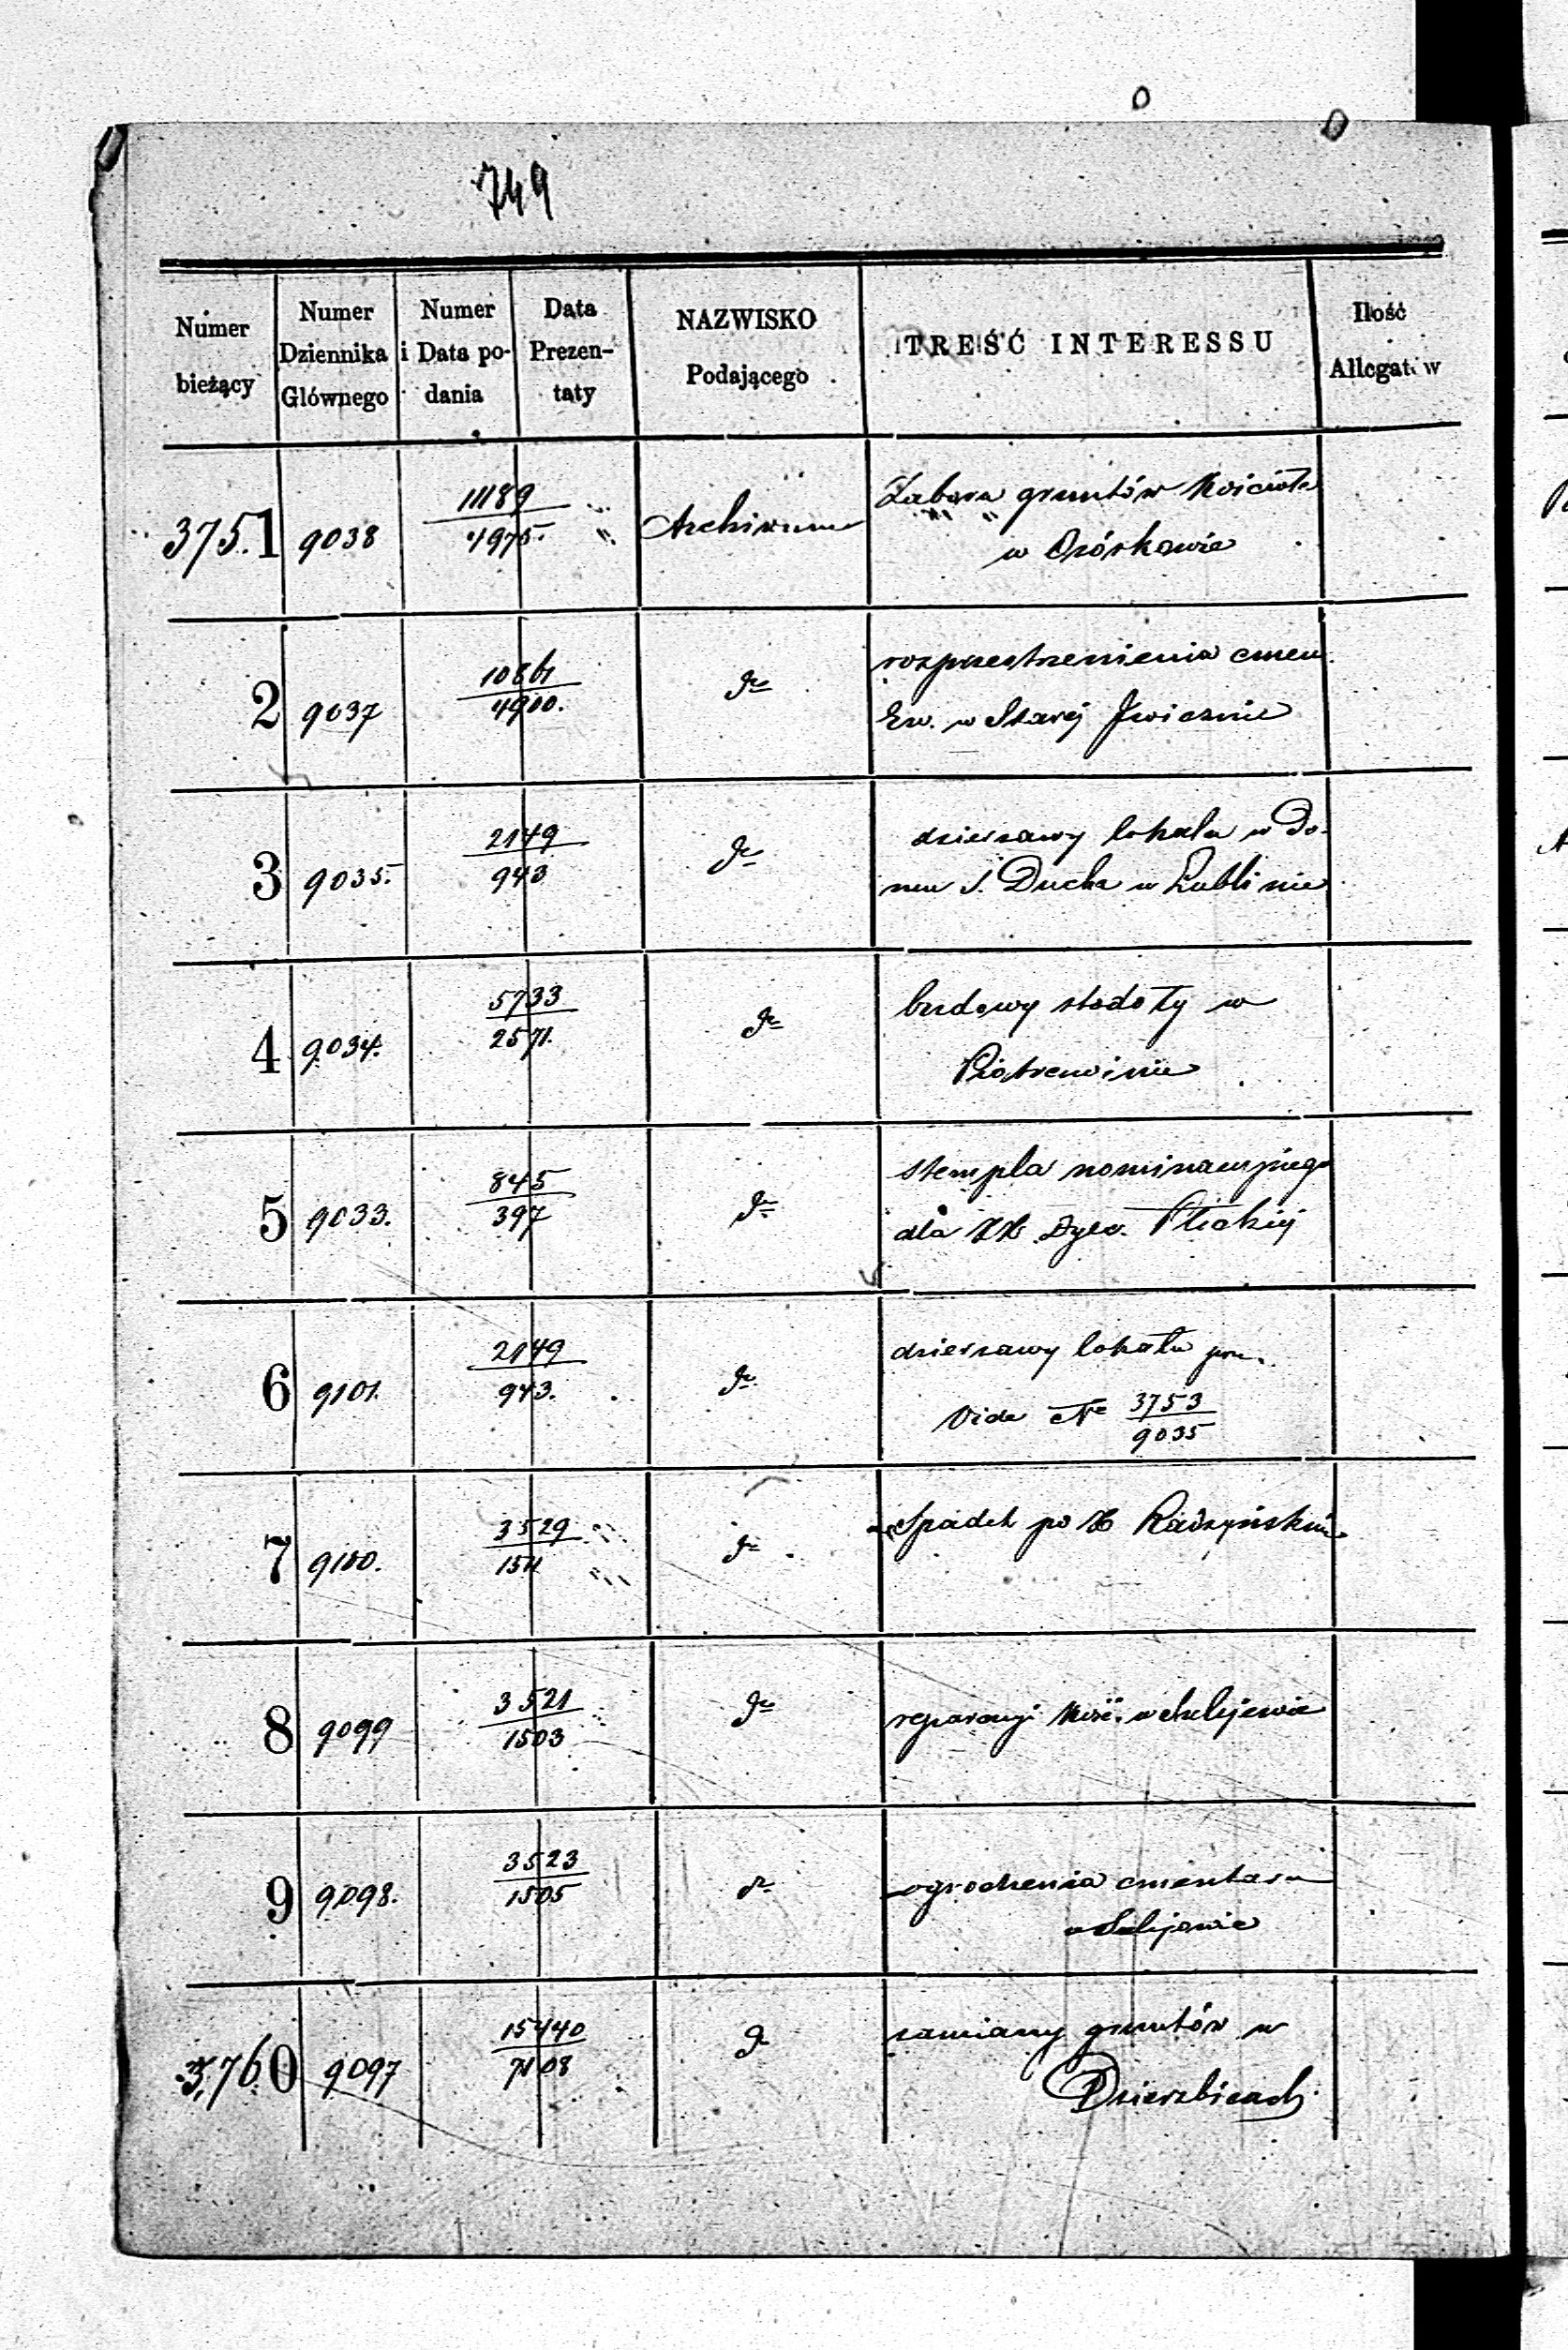 749
Numer bieżący | Numer Dziennika Głównego | Numer i Data podania | Data Prezentaty | NAZWISKO Podającego | TREŚĆ INTERESSU | Ilość Allegatów
375.1 9038 11189 Archiwum Zaboru gruntów Kościoła
4975. w Ozórkowie
2 9037 10861 do rozprzestrzenienia cmen.
4900. Ew. w Starej Iwicznie
3 9035. 2149 do dzierzawy lokalu w Do-
943 mu S. Ducha w Lublinie
4 9034. 5733 do budowy stodoły w
2571. Piotrawinie
5 9033. 845 do stempla nominacyjnego
397 dla XX. Dyec. Płockiej
6 9101. 2149 do dzierzawy lokalu
943. Vide No 3753
9035
7 9100. 3529 do Spadek po X Radzyńskim
1511
8 9099 3521 do reparacyi Kość. w Sulejowie
1503
9 9098. 3523 do ogrodzenia cmentarza
1505 w Sulejowie
3,760 9097 15440 do zamiany gruntów w
7108 Dzierzbicach